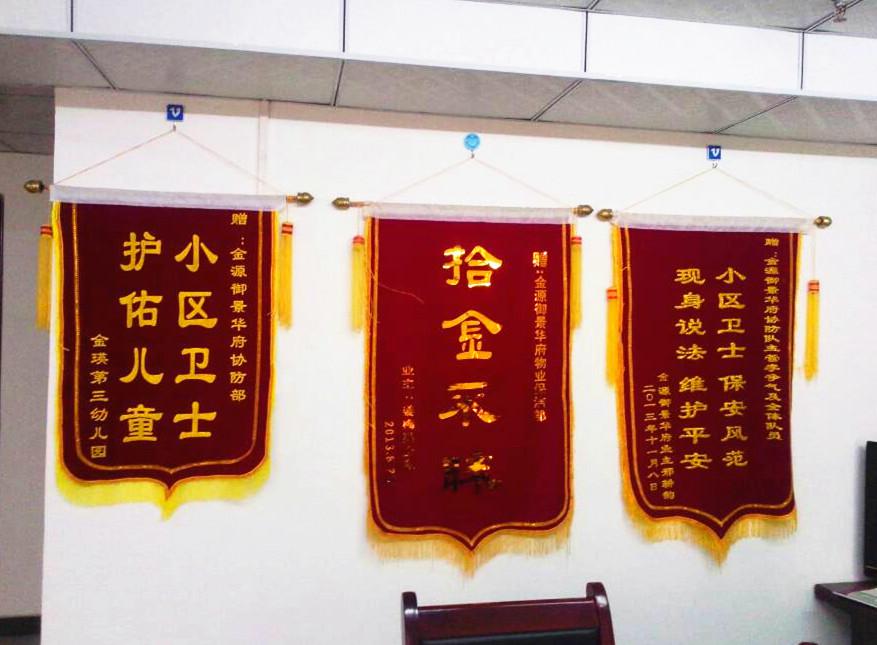 赠：金源御景华府协防部
小区卫士
护佑儿童
金瑛第三幼儿园
赠：金源御景华府物业
拾金不昧
业主：
赠：金源御景华府协防队主管李及全体队员
小区卫士 保安风范
现身说法 维护平安
金源御景华府业主郑
二〇一三年十一月八日